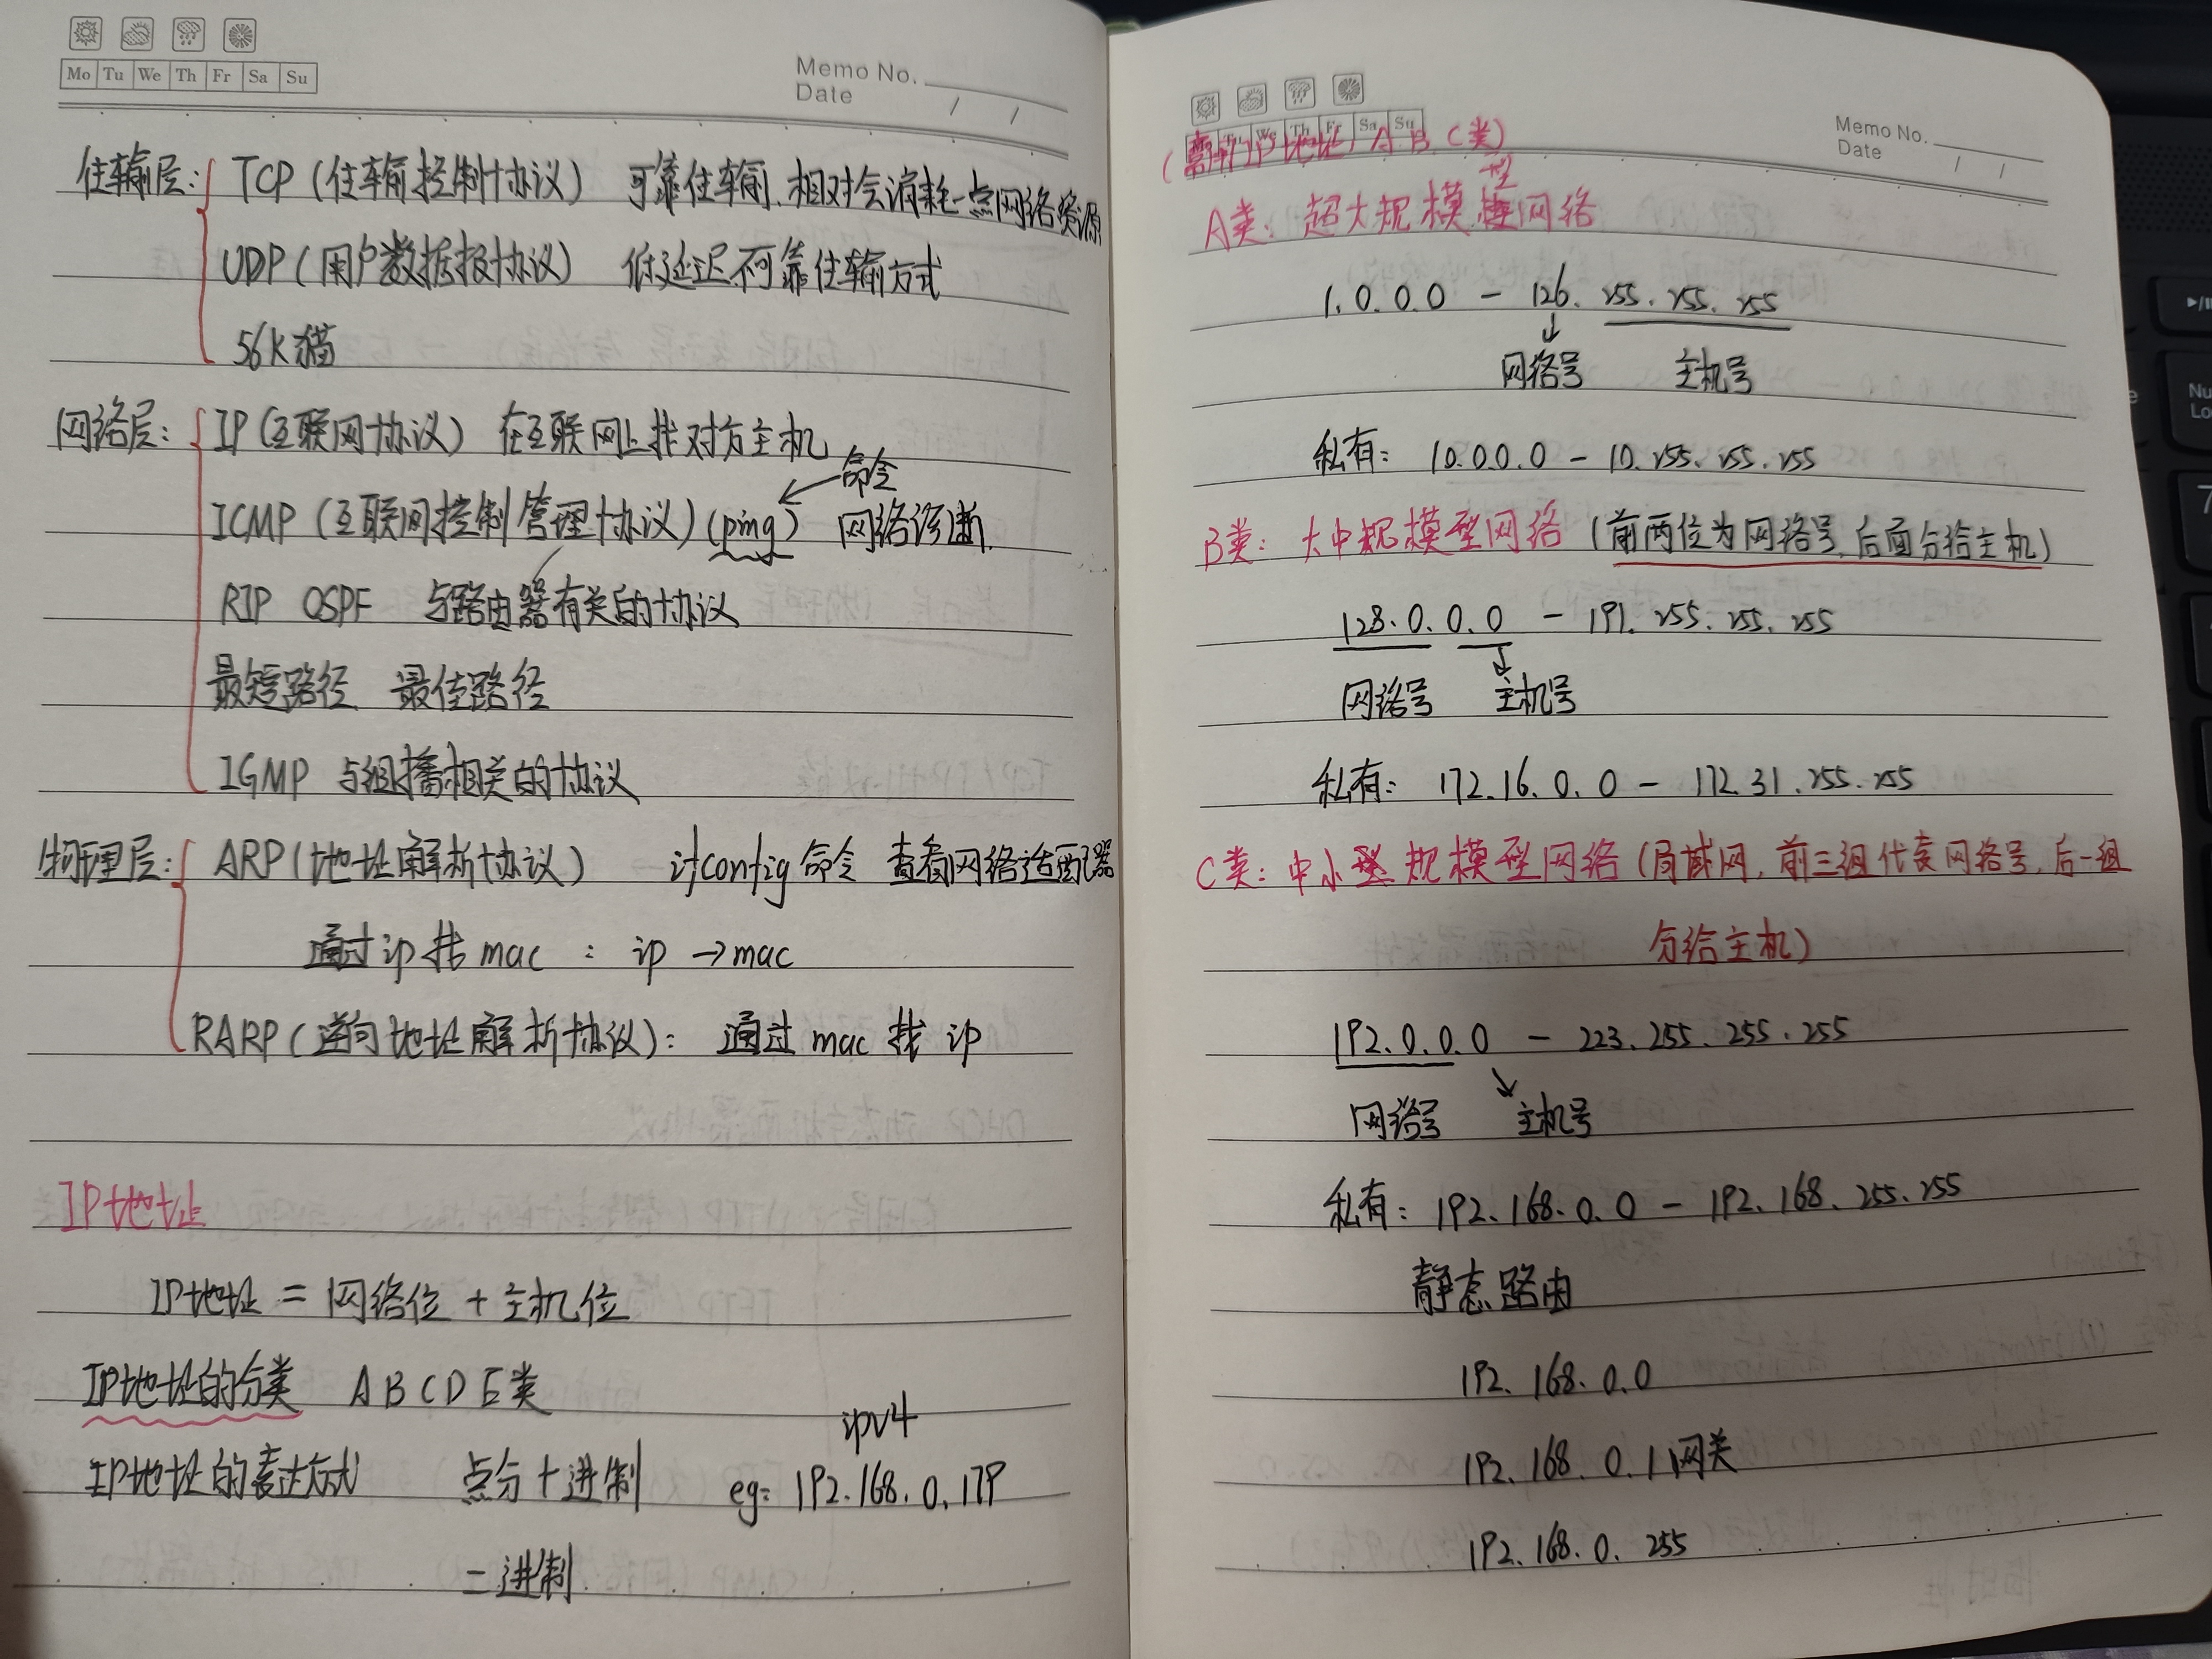 Mo Tu We Th Fr Sa Su
Memo No.
Date / /
住输层: TCP (住输控制协议) 可靠住输, 相对会消耗一点网络资源
UDP (用户数据报协议) 低延迟不可靠住输方式
56K猫
网络层: IP (互联网协议) 在互联网上找对方主机
命令
ICMP (互联间控制管理协议) (ping) 网络诊断.
RIP OSPF 与路由器有关的协议
最短路径 最佳路径
IGMP 与组播相关的协议
物理层: ARP (地址解析协议) ifconfig 命令 查看网络适配器
通过ip找mac : ip → mac
RARP (逆向地址解析协议): 通过 mac 找 ip
IP地址
IP地址 = 网络位 + 主机位
IP地址的分类 A B C D E类
ipv4
IP地址的表达方式 点分十进制 eg: 192.168.0.179
二进制
Tu We Th Fr Sa Su
Memo No.
Date / /
IP地址 A B C类)
型
A类: 超大规模网络
1.0.0.0 - 126.255.255.255
网络号 主机号
私有: 10.0.0.0 - 10.255.255.255
B类: 大中规模型网络 (前两位为网络号, 后面分给主机)
128.0.0.0 - 191.255.255.255
网络号 主机号
私有: 172.16.0.0 - 172.31.255.255
C类: 中小规模型网络 (局域网, 前三组代表网络号, 后一组
分给主机)
192.0.0.0 - 223.255.255.255
网络号 主机号
私有: 192.168.0.0 - 192.168.255.255
静态路由
192.168.0.0
192.168.0.1 网关
192.168.0.255